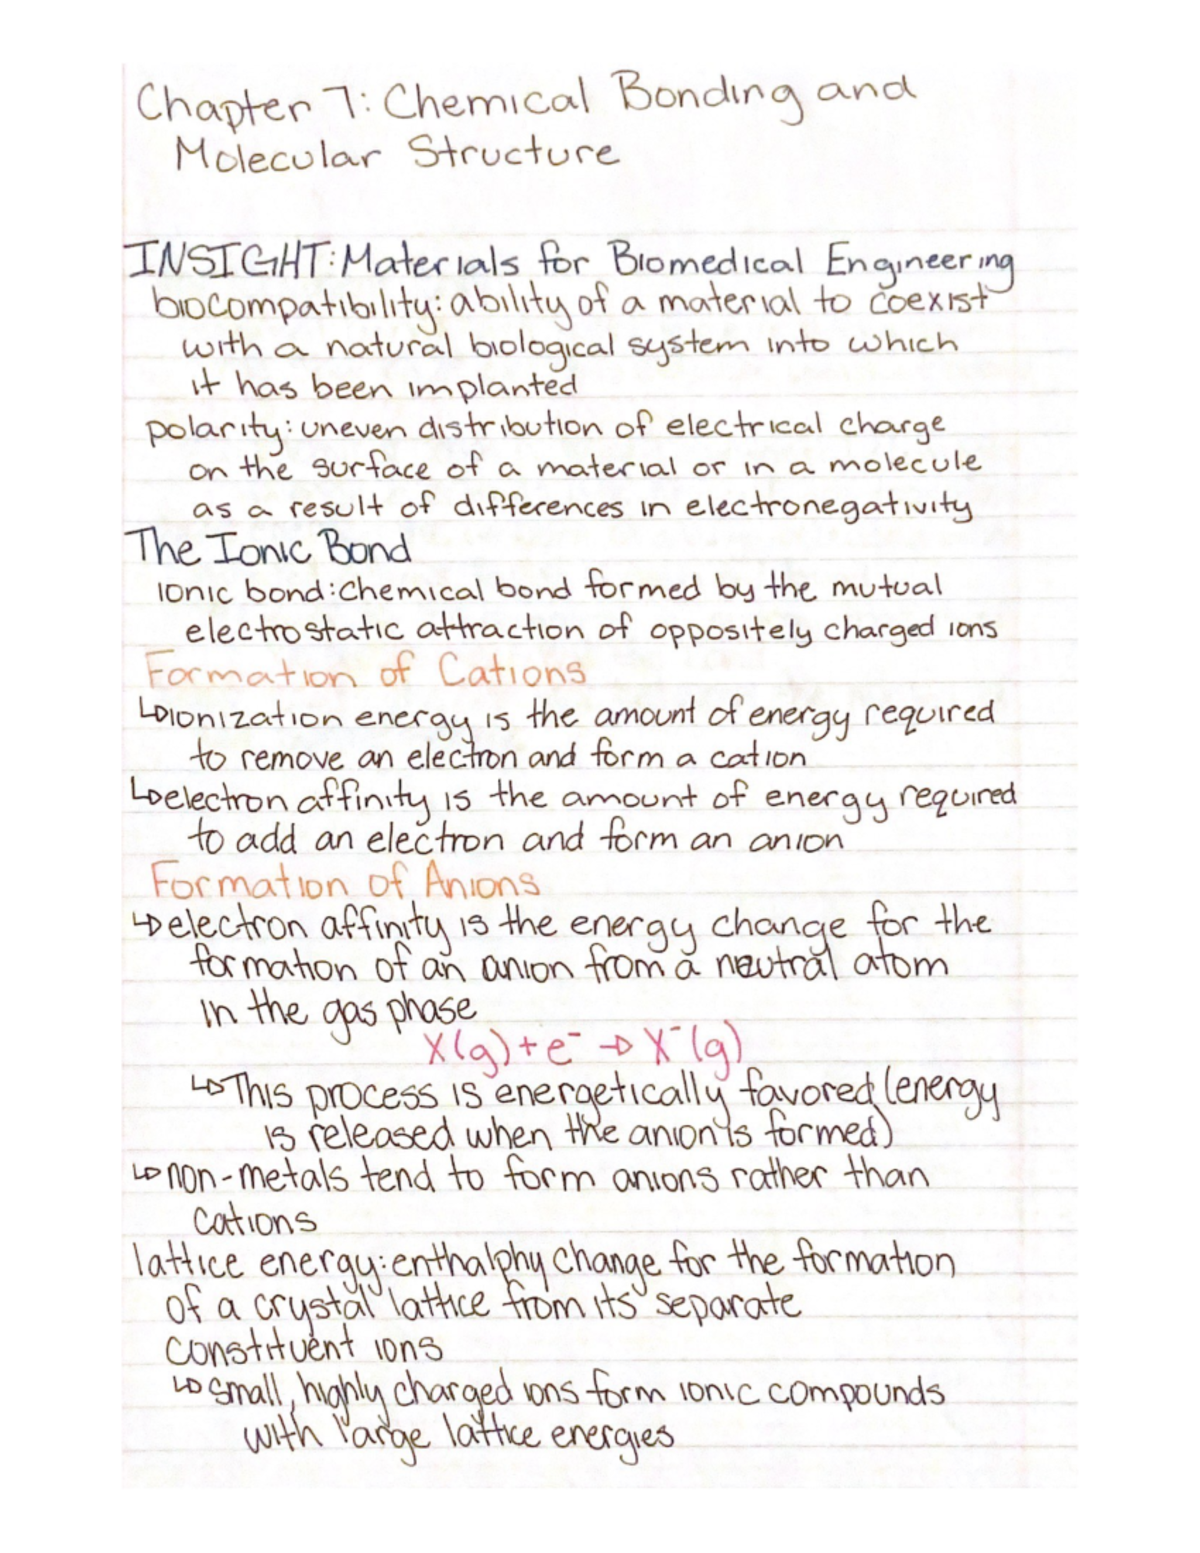 Chapter 7: Chemical Bonding and
Molecular Structure
INSIGHT: Materials for Biomedical Engineering
biocompatibility: ability of a material to coexist
with a natural biological system into which
it has been implanted
polarity: uneven distribution of electrical charge
on the surface of a material or in a molecule
as a result of differences in electronegativity
The Ionic Bond
ionic bond: chemical bond formed by the mutual
electrostatic attraction of oppositely charged ions
Formation of Cations
↳ ionization energy is the amount of energy required
to remove an electron and form a cation
↳ electron affinity is the amount of energy required
to add an electron and form an anion
Formation of Anions
↳ electron affinity is the energy change for the
formation of an anion from a neutral atom
in the gas phase
X(g) + e⁻ → X⁻(g)
↳ This process is energetically favored (energy
is released when the anion is formed)
↳ non-metals tend to form anions rather than
cations
lattice energy: enthalphy change for the formation
of a crystal lattice from its separate
constituent ions
↳ small, highly charged ions form ionic compounds
with large lattice energies